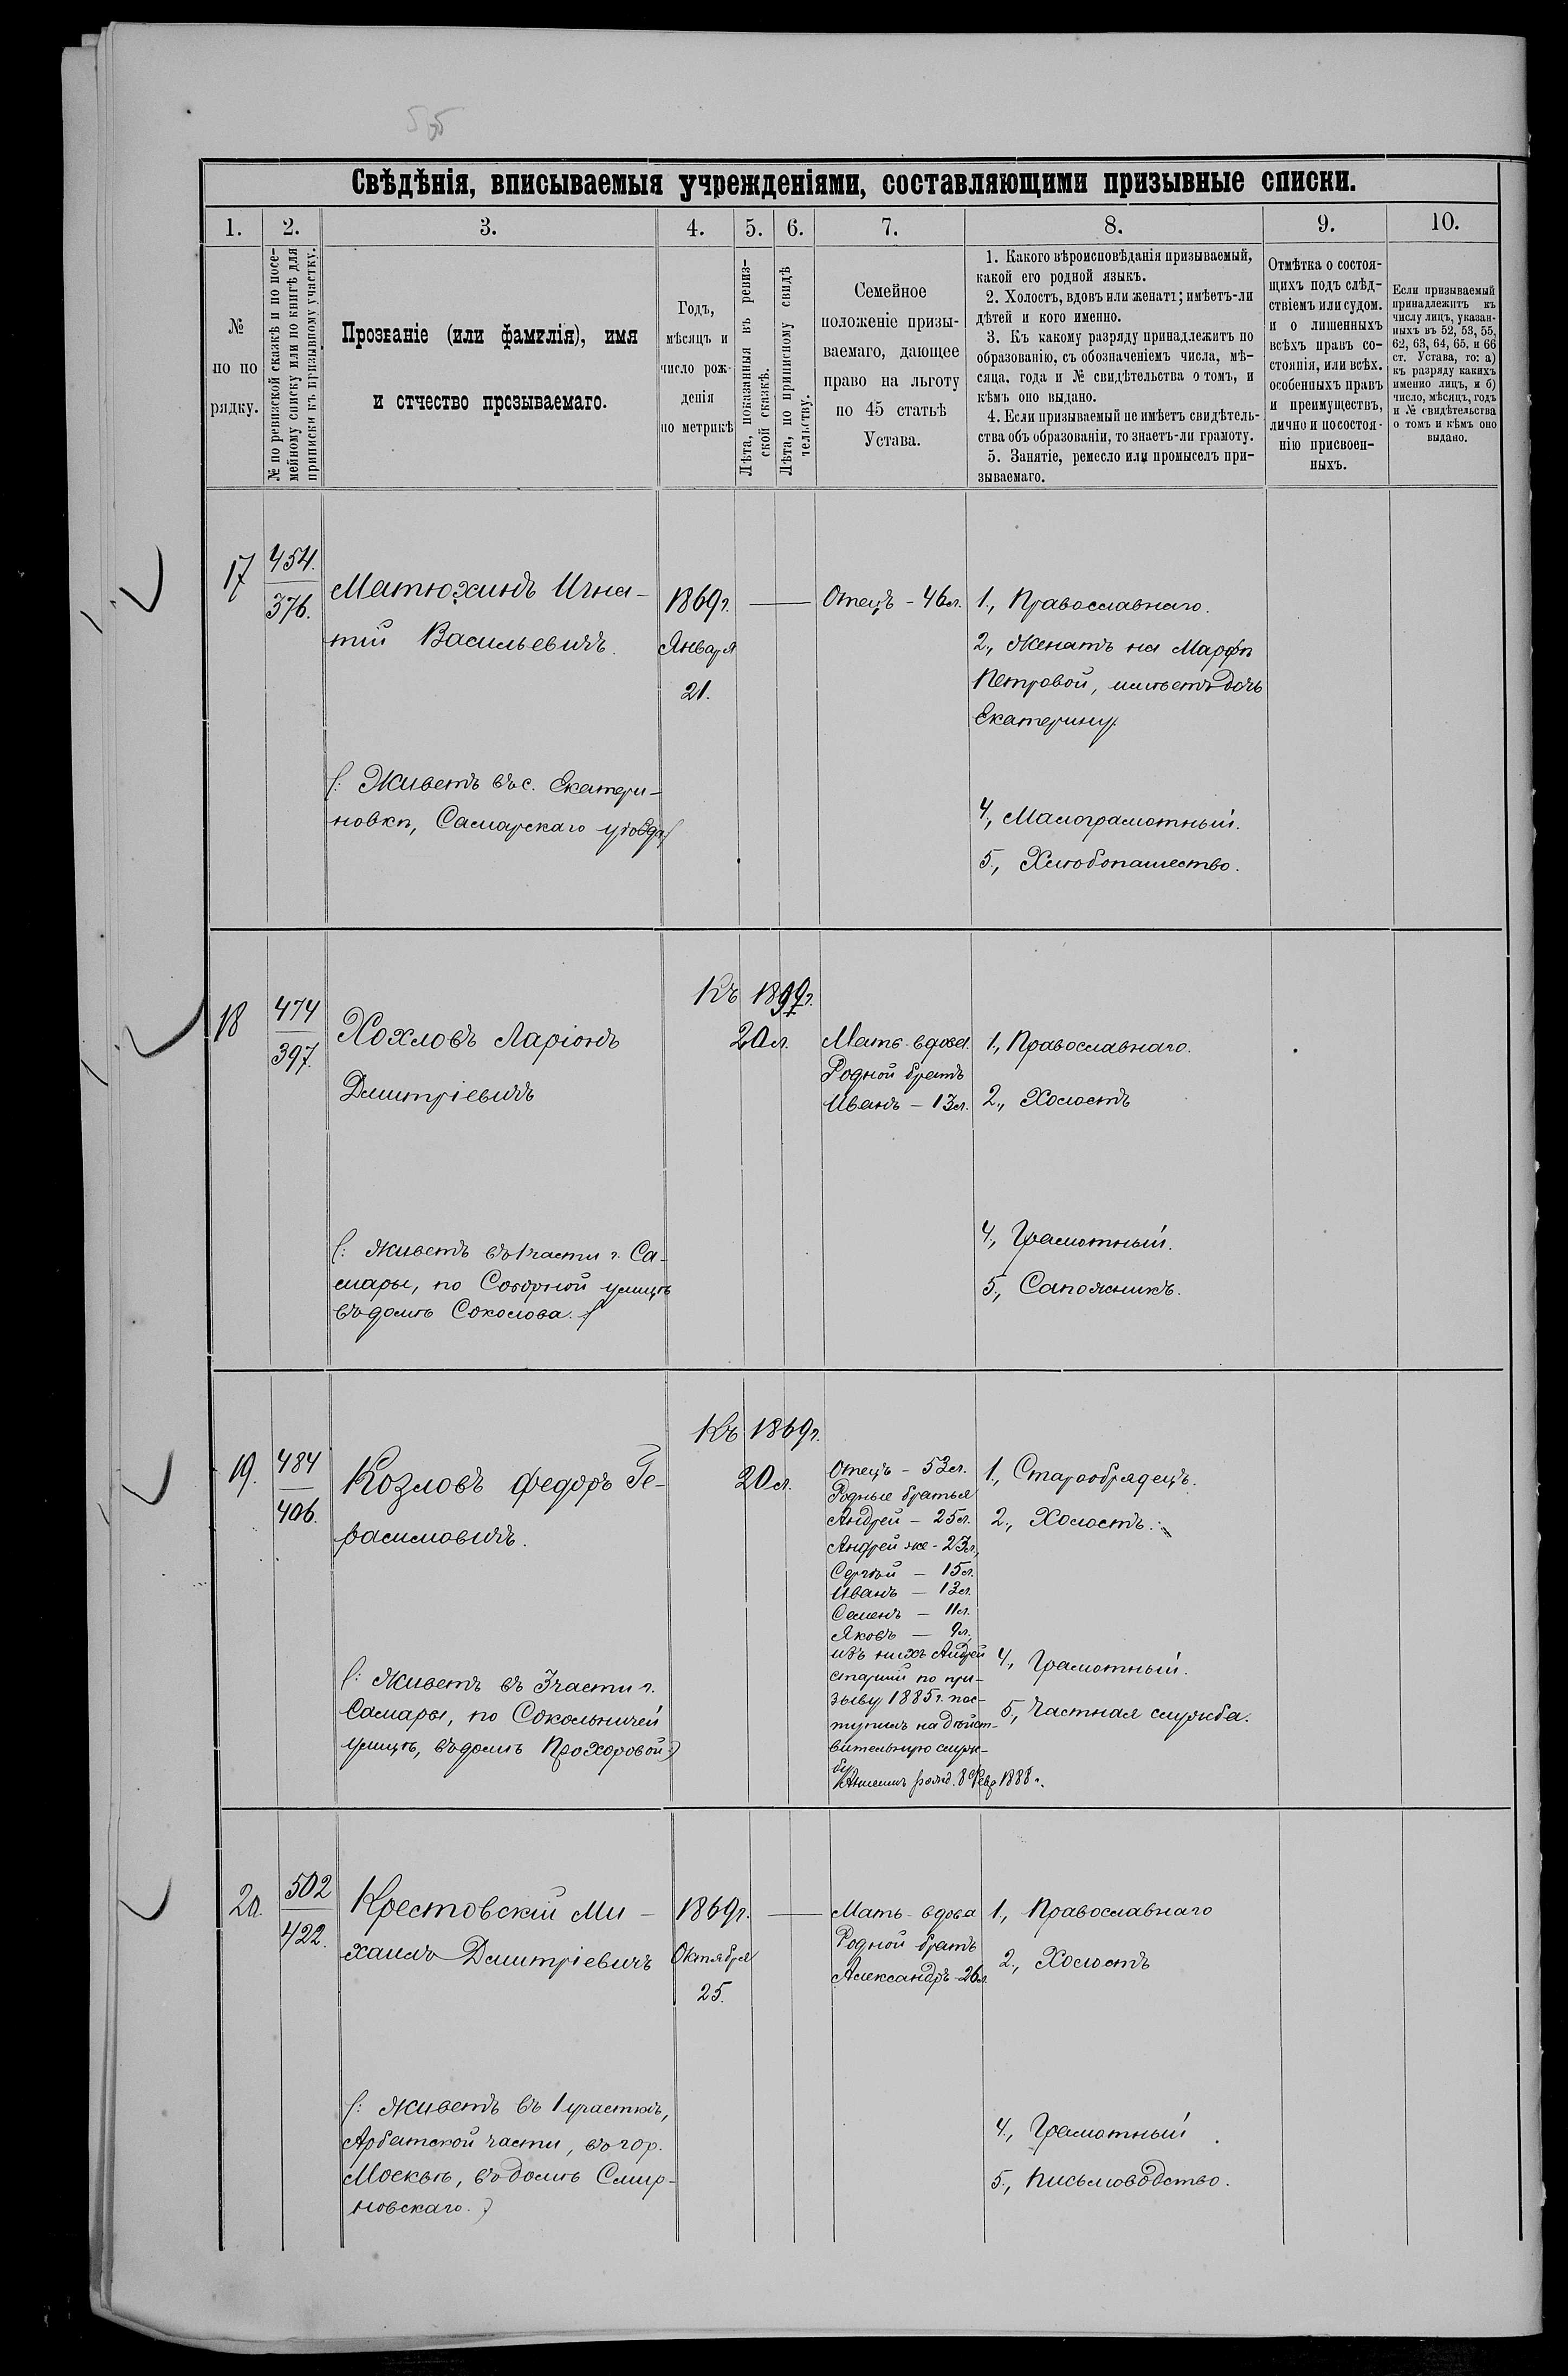 55
Свѣдѣнія, вписываемыя учрежденіями, составляющими призывные списки.
1. 2. 3. 4. 5. 6. 7. 8. 9. 10.
№
по по
рядку.
№ по ревизской сказкѣ и по посе-
мейному списку или по книгѣ для
приписки къ призывному участку.
Прозваніе (или фамилія), имя
и отчество прозываемаго.
Годъ,
мѣсяцъ и
число рож-
денія
по метрикѣ
Лѣта, показанныя въ ревиз-
ской сказкѣ.
Лѣта, по приписному свидѣ
тельству.
Семейное
положеніе призы-
ваемаго, дающее
право на льготу
по 45 статьѣ
Устава.
1. Какого вѣроисповѣданія призываемый,
какой его родной языкъ.
2. Холостъ, вдовъ или женатъ; имѣетъ-ли
дѣтей и кого именно.
3. Къ какому разряду принадлежитъ по
образованію, съ обозначеніемъ числа, мѣ-
сяца, года и № свидѣтельства о томъ, и
кѣмъ оно выдано.
4. Если призываемый не имѣетъ свидѣтель-
ства объ образованіи, то знаетъ-ли грамоту.
5. Занятіе, ремесло или промыселъ при-
зываемаго.
Отмѣтка о состоя-
щихъ подъ слѣд-
ствіемъ или судом.
и о лишенныхъ
всѣхъ правъ со-
стоянія, или всѣх.
особенныхъ правъ
и преимуществъ,
лично и по состоя-
нію присвоен-
ныхъ.
Если призываемый
принадлежитъ къ
числу лицъ, указан-
ныхъ въ 52, 53, 55,
62, 63, 64, 65. и 66
ст. Устава, то: а)
къ разряду какихъ
именно лицъ, и б)
число, мѣсяцъ, годъ
и № свидѣтельства
о томъ и кѣмъ оно
выдано.
17
454.
376.
Матюхинъ Игна-
тій Васильевичъ.
(: Живетъ въ с. Екатери-
новкѣ, Самарскаго уѣзда
1869г.
Января
21.
Отецъ - 46л.
1., Православнаго.
2., Женатъ на Марфѣ
Петровой, имѣетъ дочь
Екатерину.
4., Малограмотный.
5., Хлѣбопашество.
18
474
397.
Хохловъ Ларіонъ
Дмитріевичъ
(: Живетъ въ 1 части г. Са-
мары, по Соборной улицѣ
въ домѣ Соколова.
Къ
20л.
Мать-вдова.
Родной братъ
Иванъ - 13л.
1., Православнаго.
2., Холостъ
4., Грамотный.
5., Сапожникъ.
19.
484
406.
Козловъ Федоръ Ге-
расимовичъ.
(: Живетъ въ 3 части г.
Самары, по Сокольничей
улицѣ, въ домѣ Прохоровой :)
Къ 1869г.
20л.
Отецъ - 53л.
Родные братья
Андрей - 25л.
Андрей же - 23л.,
Сергѣй - 15л.
Иванъ - 13л.
Семенъ - 11л.
Яковъ - 9л.,
изъ нихъ Андрей
старшій по при-
зыву 1885г. пос-
тупилъ на дѣйст-
вительную служ-
бу
8 Февр 1888 г.
1., Старообрядецъ.
2., Холостъ.
4., Грамотный.
5., Частная служба.
20.
502
422.
Крестовскій Ми-
хаилъ Дмитріевичъ
(: Живетъ въ 1 участкѣ,
Арбатской части, въ гор.
Москвѣ, въ домѣ Смир-
новскаго. )
1869г.
Октября
25.
Мать-вдова
Родной братъ
Александръ - 26л.
1., Православнаго
2., Холостъ
4., Грамотный
5., Письмоводство.